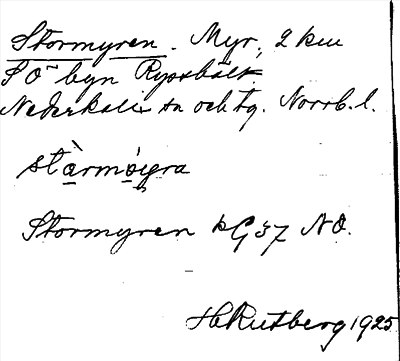 Stormyren. Myr, 2 km
SO byn Ryssbält.
Nederkalix sn och tg. Norrb. l.
stàrmøyra
Stormyren kG 37 NO.
H Rutberg 1925